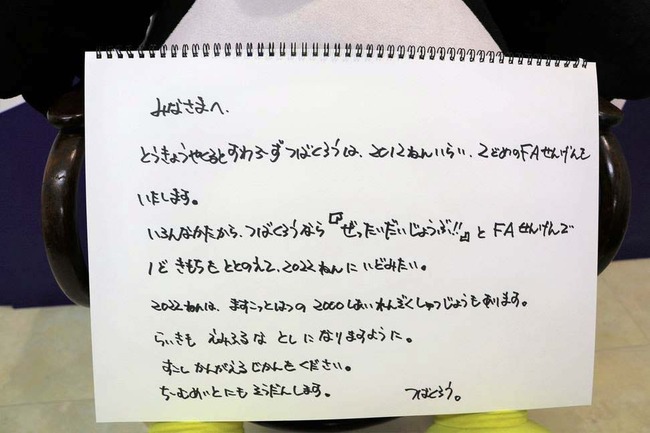 みなさまへ、
とうきょうやくるとすわろーずつばくろうは、2012ねんいらい、2どめのFAせんげんを
いたします。
いろんなかたから、つばくろうなら『ぜったいだいじょうぶ!!』とFAせんげんで
1ど きもちを ととのえて、2022ねんにいどみたい。
2022ねんは、ますこっとはつの 2000しあいれんぞくしゅつじょうもあります。
らいきも えみふるな としに なりますように。
すこし かんがえるじかんをください。
ちーむめいとにも そうだんします。 つばくろう。